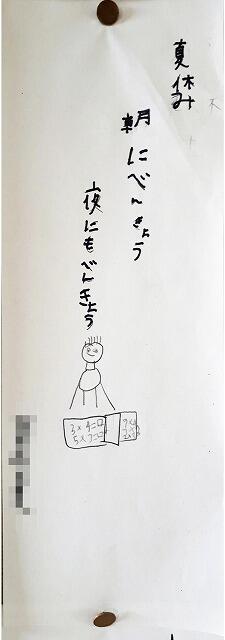 夏休み
朝にべんきょう
夜にもべんきょう
3×4=□
5×7=□